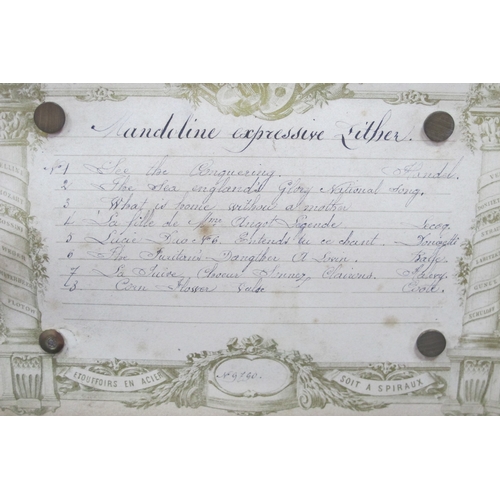 Mandoline expressive Zither.
No 1 See the Conquering. Handel.
2 The Sea england's Glory National Song.
3 What is home without a mother
4 La fille de Mme Angot Legende Lecoq.
5 Lucie No 6. Entends tu ce chant. Donizetti
6 The Puritan's Daughter A Loon. Balfe
7 La Juive, Choeur Sonnez Clairons. Halevy
8 Corn Flower Valse Coote.
ETOUFFOIRS EN ACIER
SOIT A SPIRAUX